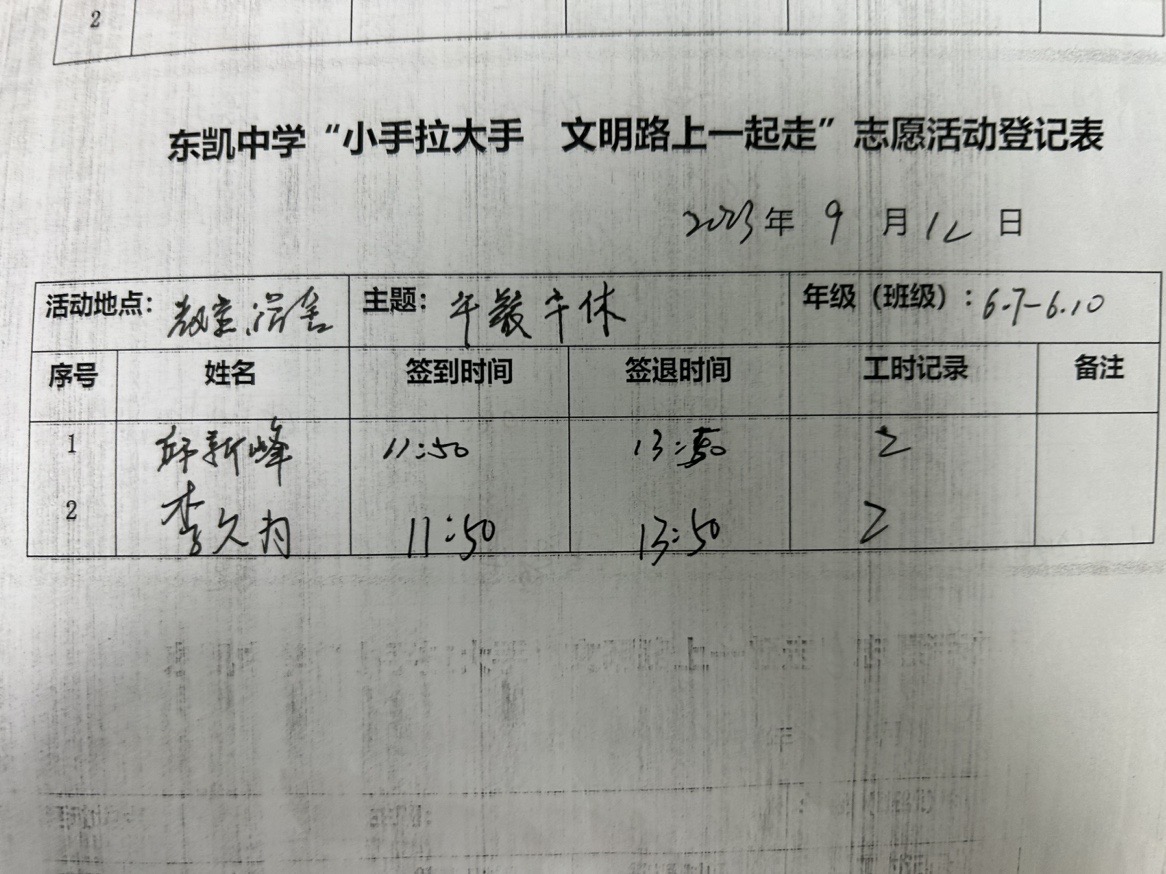 2
东凯中学“小手拉大手 文明路上一起走”志愿活动登记表
2023年 9 月 12 日
活动地点：教室、宿舍 主题：午餐午休 年级（班级）：6.7-6.10
序号 姓名 签到时间 签退时间 工时记录 备注
1 新峰 11:50 13:50 2
2 李久 11:50 13:50 2